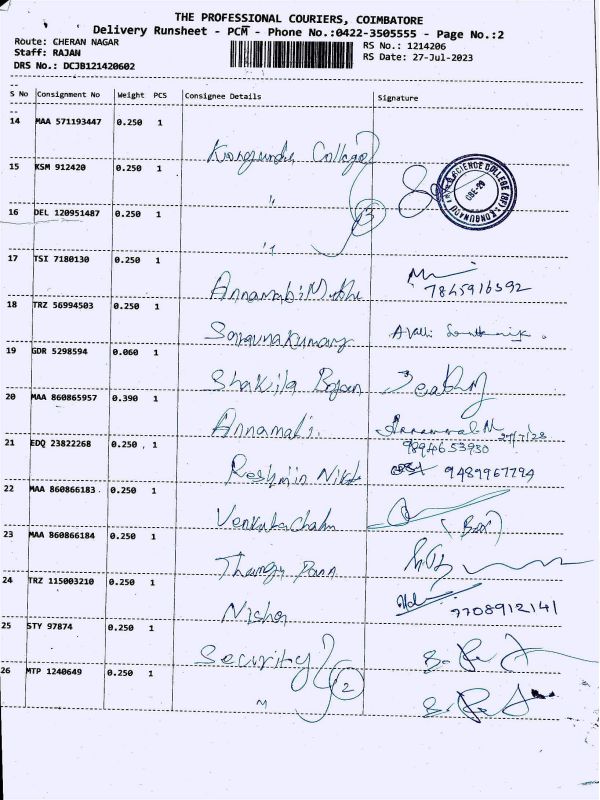 THE PROFESSIONAL COURIERS, COIMBATORE
Delivery Runsheet - PCM - Phone No.:0422-3505555 - Page No.:2
Route: CHERAN NAGAR
RS No.: 1214206
Staff: RAJAN
RS Date: 27-Jul-2023
DRS No.: DCJB121420602
S No Consignment No Weight PCS Consignee Details Signature
14 MAA 571193447 0.250 1 College
15 KSM 912420 0.250 1 "
16 DEL 120951487 0.250 1 " 3
SCIENCE COLLEGE
CBE-29
17 TSI 7180130 0.250 1
7845916392
18 TRZ 56994503 0.250 1 Saravnakumar
19 GDR 5298594 0.060 1 Shakila
20 MAA 860865957 0.390 1 Annamali. 27/7/23
9894653930
21 EDQ 23822268 0.250 1 9489967794
22 MAA 860866183 0.250 1 Venkatachalm
23 MAA 860866184 0.250 1
24 TRZ 115003210 0.250 1 7708912141
25 STY 97874 0.250 1 Security
26 MTP 1240649 0.250 1 " 2